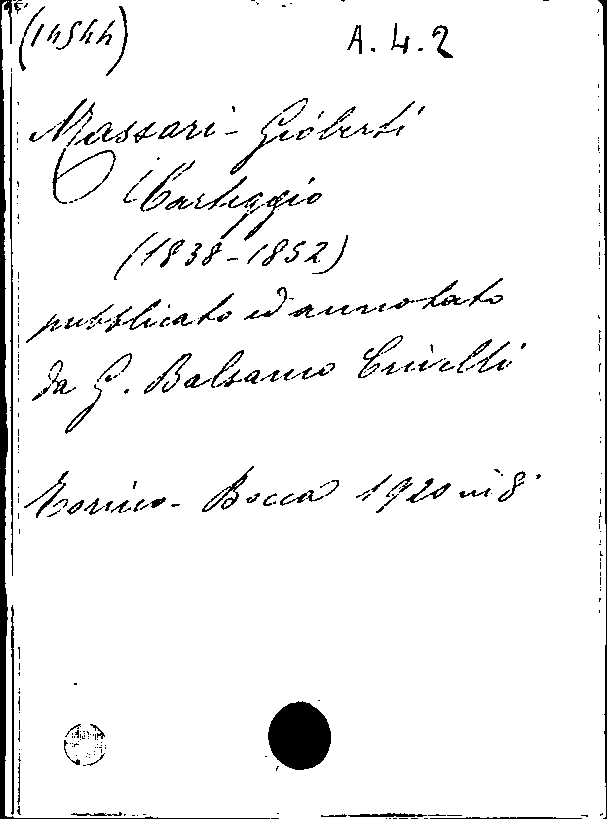 (14544)
A. 4. 2
Massari - Gioberti
Carteggio
(1838-1852)
pubblicato ed annotato
da G. Balsamo Crivelli
Torino - Bocca 1920 in 8°